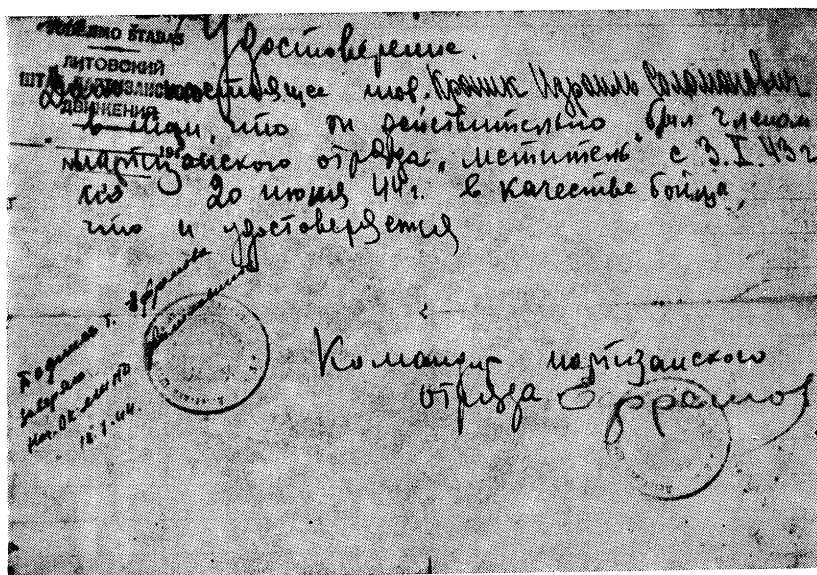 ŠTABAS
ЛИТОВСКИЙ
ШТАБ ПАРТИЗАНСКОГО
ДВИЖЕНИЯ
№
Удостоверение.
Дано настоящее тов. Кроник Израиль Соломонович
в том, что он действительно был членом
партизанского отряда „мститель" с 3.X.43 г
по 20 июня 44 г. в качестве бойца,
что и удостоверяется
Командир партизанского
отряда
Подпись т.
заверяю